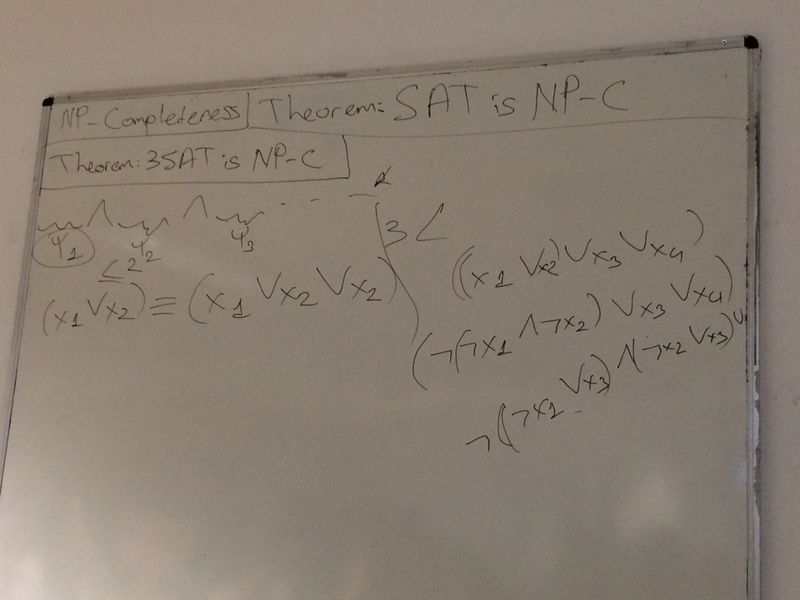 NP-Completeness Theorem: SAT is NP-C
Theorem: 3SAT is NP-C
∧ ∧ - - -
ψ1 ψ2 ψ3
≤2
(x1 ∨ x2) ≡ (x1 ∨ x2 ∨ x2)
3 <
((x1 ∨ x2) ∨ x3 ∨ x4)
(¬(¬x1 ∧ ¬x2) ∨ x3 ∨ x4)
¬(¬x1 ∨ x3) ∧ (¬x2 ∨ x3)